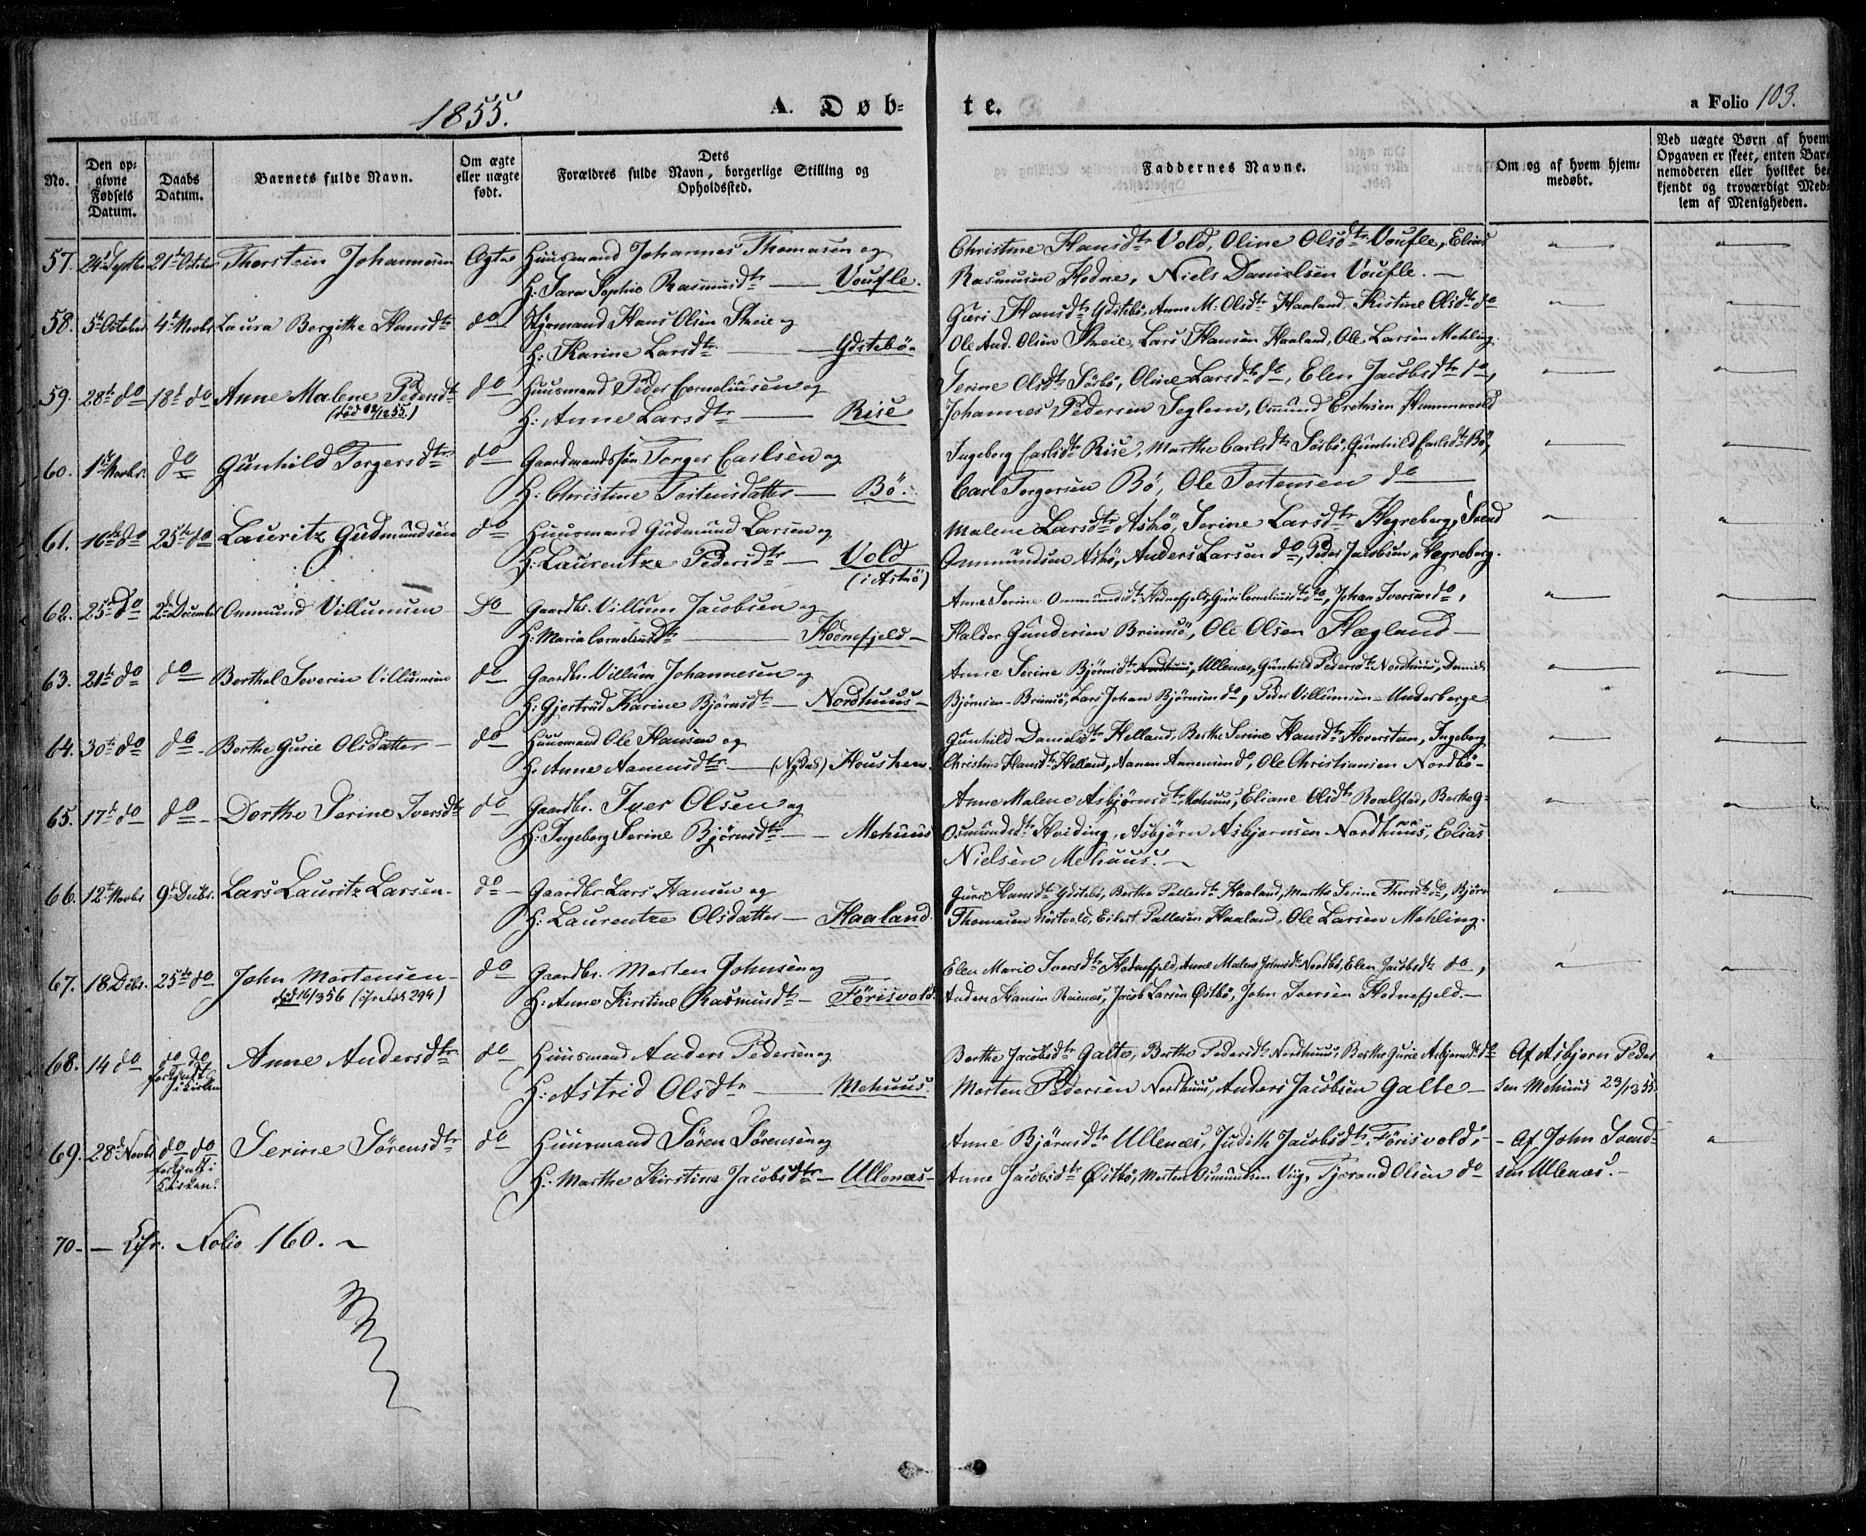 1855. A. Døb- te. a Folio 103.
No. Den opgivne Fødsels Datum. Daabs Datum. Barnets fulde Navn. Om ægte eller uægte født. Dets Forældres fulde Navn, borgerlige Stilling og Opholdssted. Faddernes Navne. Om og af hvem hjemmedøbt. Ved uægte Børn af hvem Opgaven er skeet, enten Barnemoderen eller hvilket bekjendt og troværdigt Medlem af Menigheden.
57. 24de Septbr 21de Octobr Thorstein Johannesen Ægte Huusmand Johannes Thomasen og Christine Hansdtr Vold, Oline Olsdtr Voufle, Elias
H: Sara Sophie Rasmusdtr — Voufle. Rasmusen Hodne, Niels Danielsen Voufle. —
58. 5te October 4de Novbr Laura Bergithe Hansdtr do Hans Olsen Skeie og Guri Hansdtr Ydstebö, Anne M: Olsdtr Haaland, Kistine Olsdtr do
H: Karine Larsdtr — Ydstebö. Ole And. Olsen Skeie, Lars Hansen Haaland, Ole Larsen Mehling.
59. 28de do 18de do Anne Malene Pedersdtr do Huusmand Peder Corneliusen og Serine Olsdtr Sörbö, Oline Larsdtr do, Elen Jacobsdtr do,
H: Anne Larsdtr — Rise Johannes Pedersen Seglem, Omund Eriksen
60. 1ste Novbr. do Gunhild Torgersdtr do Gaardmandssön Torger Carlsen og Ingeborg Carlsdtr Rise, Marthe Carlsdtr Sörbö, Gunhild Carlsdtr Bö,
H: Christine Tostensdatter — Bö. Carl Torgersen Bö, Ole Tostensen do
61. 16de do 25de do Lauritz Gudmundsen do Huusmand Gudmund Larsen og Malene Larsdtr Askö, Serine Larsdtr Hegreberg, Svend
H: Laurentze Pedersdtr — Vold (i Askö) Ommundsen Askö, Anders Larsen do, Peder Jacobsen Hegreberg.
62. 25de do 2den December Ommund Villumsen do Gaardbr. Villum Jacobsen og Anne Serine Ommundsdtr Hodnefjeld, Guri Corneliusdtr do, Johan Iversen do,
H: Maria Corneliusdtr — Hodnefjeld — Halder Gundersen Brimsö, Ole Olsen Hægland —
63. 21de do do Berthel Severin Villumsen do Gaardbr. Villum Johannesen og Anne Serine Bjørnsdtr Nordhuus, Ullenæs, Gunhild Pedersdtr Nordhuus, Daniel
H: Gjertrud Karine Bjørnsdtr — Nordhuus — Bjørnsen Brimsö, Lars Johan Bjørnsen do, Peder Villumsen Underberge
64. 30te do do Berthe Gurie Olsdatter do Huusmand Ole Hansen og Gunhild Danielsdtr Helland, Berthe Serine Hansdtr Hoversteen, Ingeborg
H: Anne Aanensdtr — Housken. Christine Hansdtr Helland, Aanen Aanensen do, Ole Christiansen Nordbö.
65. 17de do do Dorthe Serine Iversdtr do Gaardbr. Iver Olsen og Anne Malene Asbjørnsdtr Mehuus, Eliane Olsdtr Roalstad, Berthe G.
H: Ingeborg Serine Bjørnsdtr — Mehuus Osmundsdtr Hviding, Asbjørn Asbjørnsen Nordhuus, Elias
Nielsen Mehuus. —
66. 12te Novbr 9de Decbr. Lars Lauritz Larsen do Gaardbr. Lars Hansen og Guri Hansdtr Ydstebö, Berthe Pallesdtr Haaland, Marthe Serine Thorsdtr do, Bjørn
H: Laurentze Olsdatter — Haaland. Thomasen, Eilert Pallesen Haaland, Ole Larsen Mehling.
67. 18 Decbr. 25de do John Mortensen do Gaardbr. Morten Johnsen og Elen Marie Iversdtr Hodnefjeld, Anne Malene Johnsdtr Nordbö, Elen Jacobsdtr do,
H: Anne Kirstine Rasmusdtr — Förisvold Anders Hansen, Jacob Larsen Østbö, John Iversen Hodnefjeld. —
68. 14 do do do forkyndt i kirken Anne Andersdtr do Huusmand Anders Pedersen og Berthe Jacobsdtr Galte, Berthe Pedersdtr Nordhuus, Berthe Gurie Asbjørnsdtr do Af Asbjørn Peder-
H: Astrid Olsdtr — Mehuus. Morten Pedersen Nordhuus, Anders Jacobsen Galte — sen Mehuus 23/12 55.
69. 28de Novbr do do forkyndt i Kirken. Serine Sörensdtr do Huusmand Sören Sörensen og Anne Bjørnsdtr Ullenæs, Judith Jacobsdtr Förisvold, — Af John Svend-
H: Marthe Kirstine Jacobsdtr — Ullenæs — Anne Jacobsdtr Østbö, Morten Osmundsen Viig, Tjerand Olsen do sen Ullenæs. —
70. — Cfr. Folio 160. —